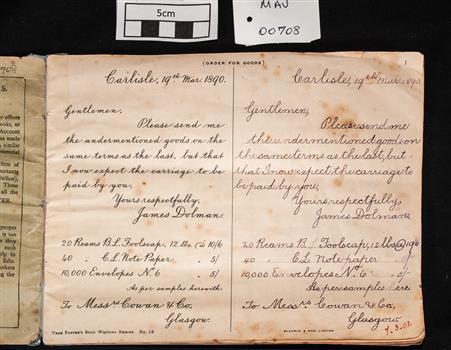 5cm
MAV
00708
(ORDER FOR GOODS)
1
Carlisle, 19th Mar. 1890.
Gentlemen,
Please send me
the undermentioned goods on the
same terms as the last, but that
I now expect the carriage to be
paid by you.
Yours respectfully,
James Dolman.
20 Reams B.L. Foolscap, 12 lbs @ 10/6
40 " C.L. Note Paper " 5/
10,000 Envelopes No. 6 " 5/
As per samples herewith.
To Messrs Cowan & Co.,
Glasgow.
Vere Foster's Bold Writing Series. No. 12
Carlisle, 19th Mar. 1890
Gentlemen,
Please send me
the undermentioned goods on
the same terms as the last, but
that I now expect the carriage to
be paid by you,
Yours respectfully,
James Dolman
20 Reams B.L. Foolscap, 12 lbs @ 10/6
40 " C.L. Note paper
10,000 Envelopes No. 6 " 5/
As per samples here
To Messrs Cowan & Co,
Glasgow
7.3.02
BLACKIE & SON LIMITED